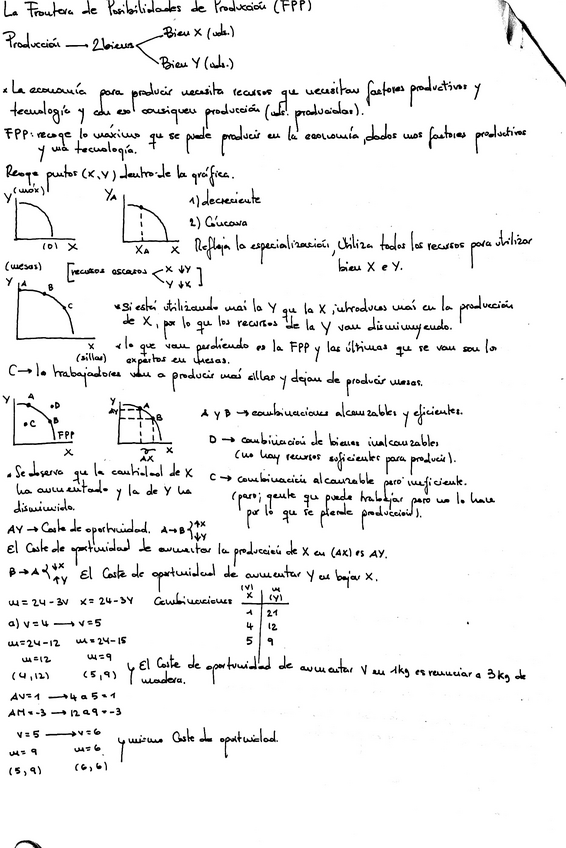 La Frontera de Posibilidades de Producción (FPP)
Producción → 2 bienes
Bien X (uds.)
Bien Y (uds.)
* La economía para producir necesita recursos que necesitan factores productivos y
tecnología y con eso consiguen producción (uds. producidas).
FPP: recoge lo máximo que se puede producir en la economía, dados unos factores productivos
y una tecnología.
Recoge puntos (X,Y) dentro de la gráfica.
Y (máx)
(0) X
YA
XA X
1) decreciente
2) Cóncava
Refleja la especialización, Utiliza todos los recursos para utilizar
bien X e Y.
(mesas)
Y A B C
X
(sillas)
[recursos escasos X ↓Y
Y ↓X]
* Si está utilizando más la Y que la X, introduces más en la producción
de X, por lo que los recursos de la Y van disminuyendo.
* lo que van perdiendo es la FPP y las últimas que se van son los
expertos en mesas.
C → lo trabajadores van a producir más sillas y dejan de producir mesas.
Y A .D .C B FPP X
Y A ΔY B ΔX X
A y B → combinaciones alcanzables y eficientes.
D → combinación de bienes inalcanzables
(no hay recursos suficientes para producir).
C → combinación alcanzable pero ineficiente.
(paro; gente que puede trabajar pero no lo hace
por lo que se pierde producción).
* Se observa que la cantidad de X
ha aumentado y la de Y ha
disminuido.
ΔY → Coste de oportunidad. A→B { ↑X ↓Y
El Coste de oportunidad de aumentar la producción de X en (ΔX) es ΔY.
B → A { ↓X ↑Y El Coste de oportunidad de aumentar Y es bajar X.
m = 24 - 3v X = 24 - 3Y Combinaciones
(V) X | m (Y)
1 | 21
4 | 12
5 | 9
a) v = 4 → v = 5
m = 24-12 m = 24-15
m = 12 m = 9
(4,12) (5,9)
} El Coste de oportunidad de aumentar V en 1kg es renunciar a 3kg de
madera.
ΔV = 1 → 4 a 5 = 1
ΔM = -3 → 12 a 9 = -3
v = 5 → v = 6
m = 9 m = 6
(5,9) (6,6)
} mismo Coste de oportunidad.